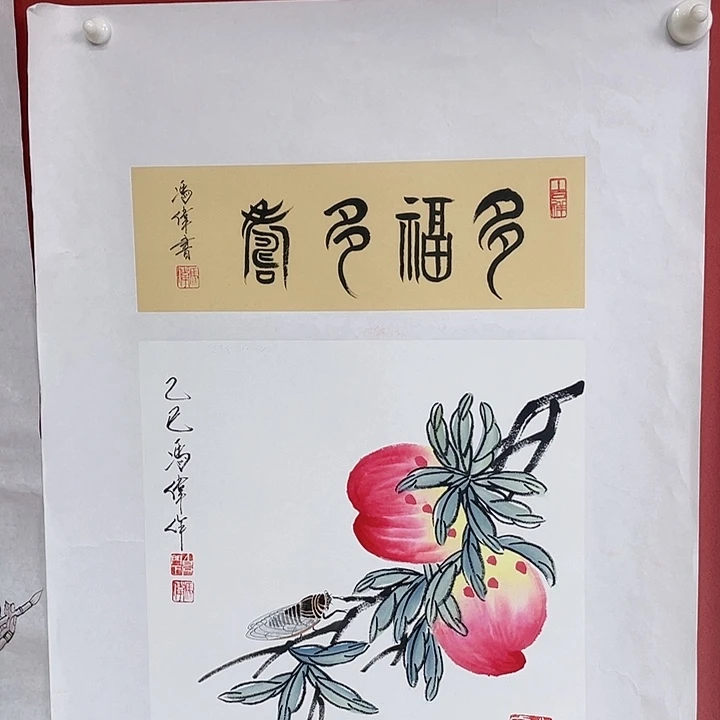 多福多壽
馮偉書
乙巳馮偉作